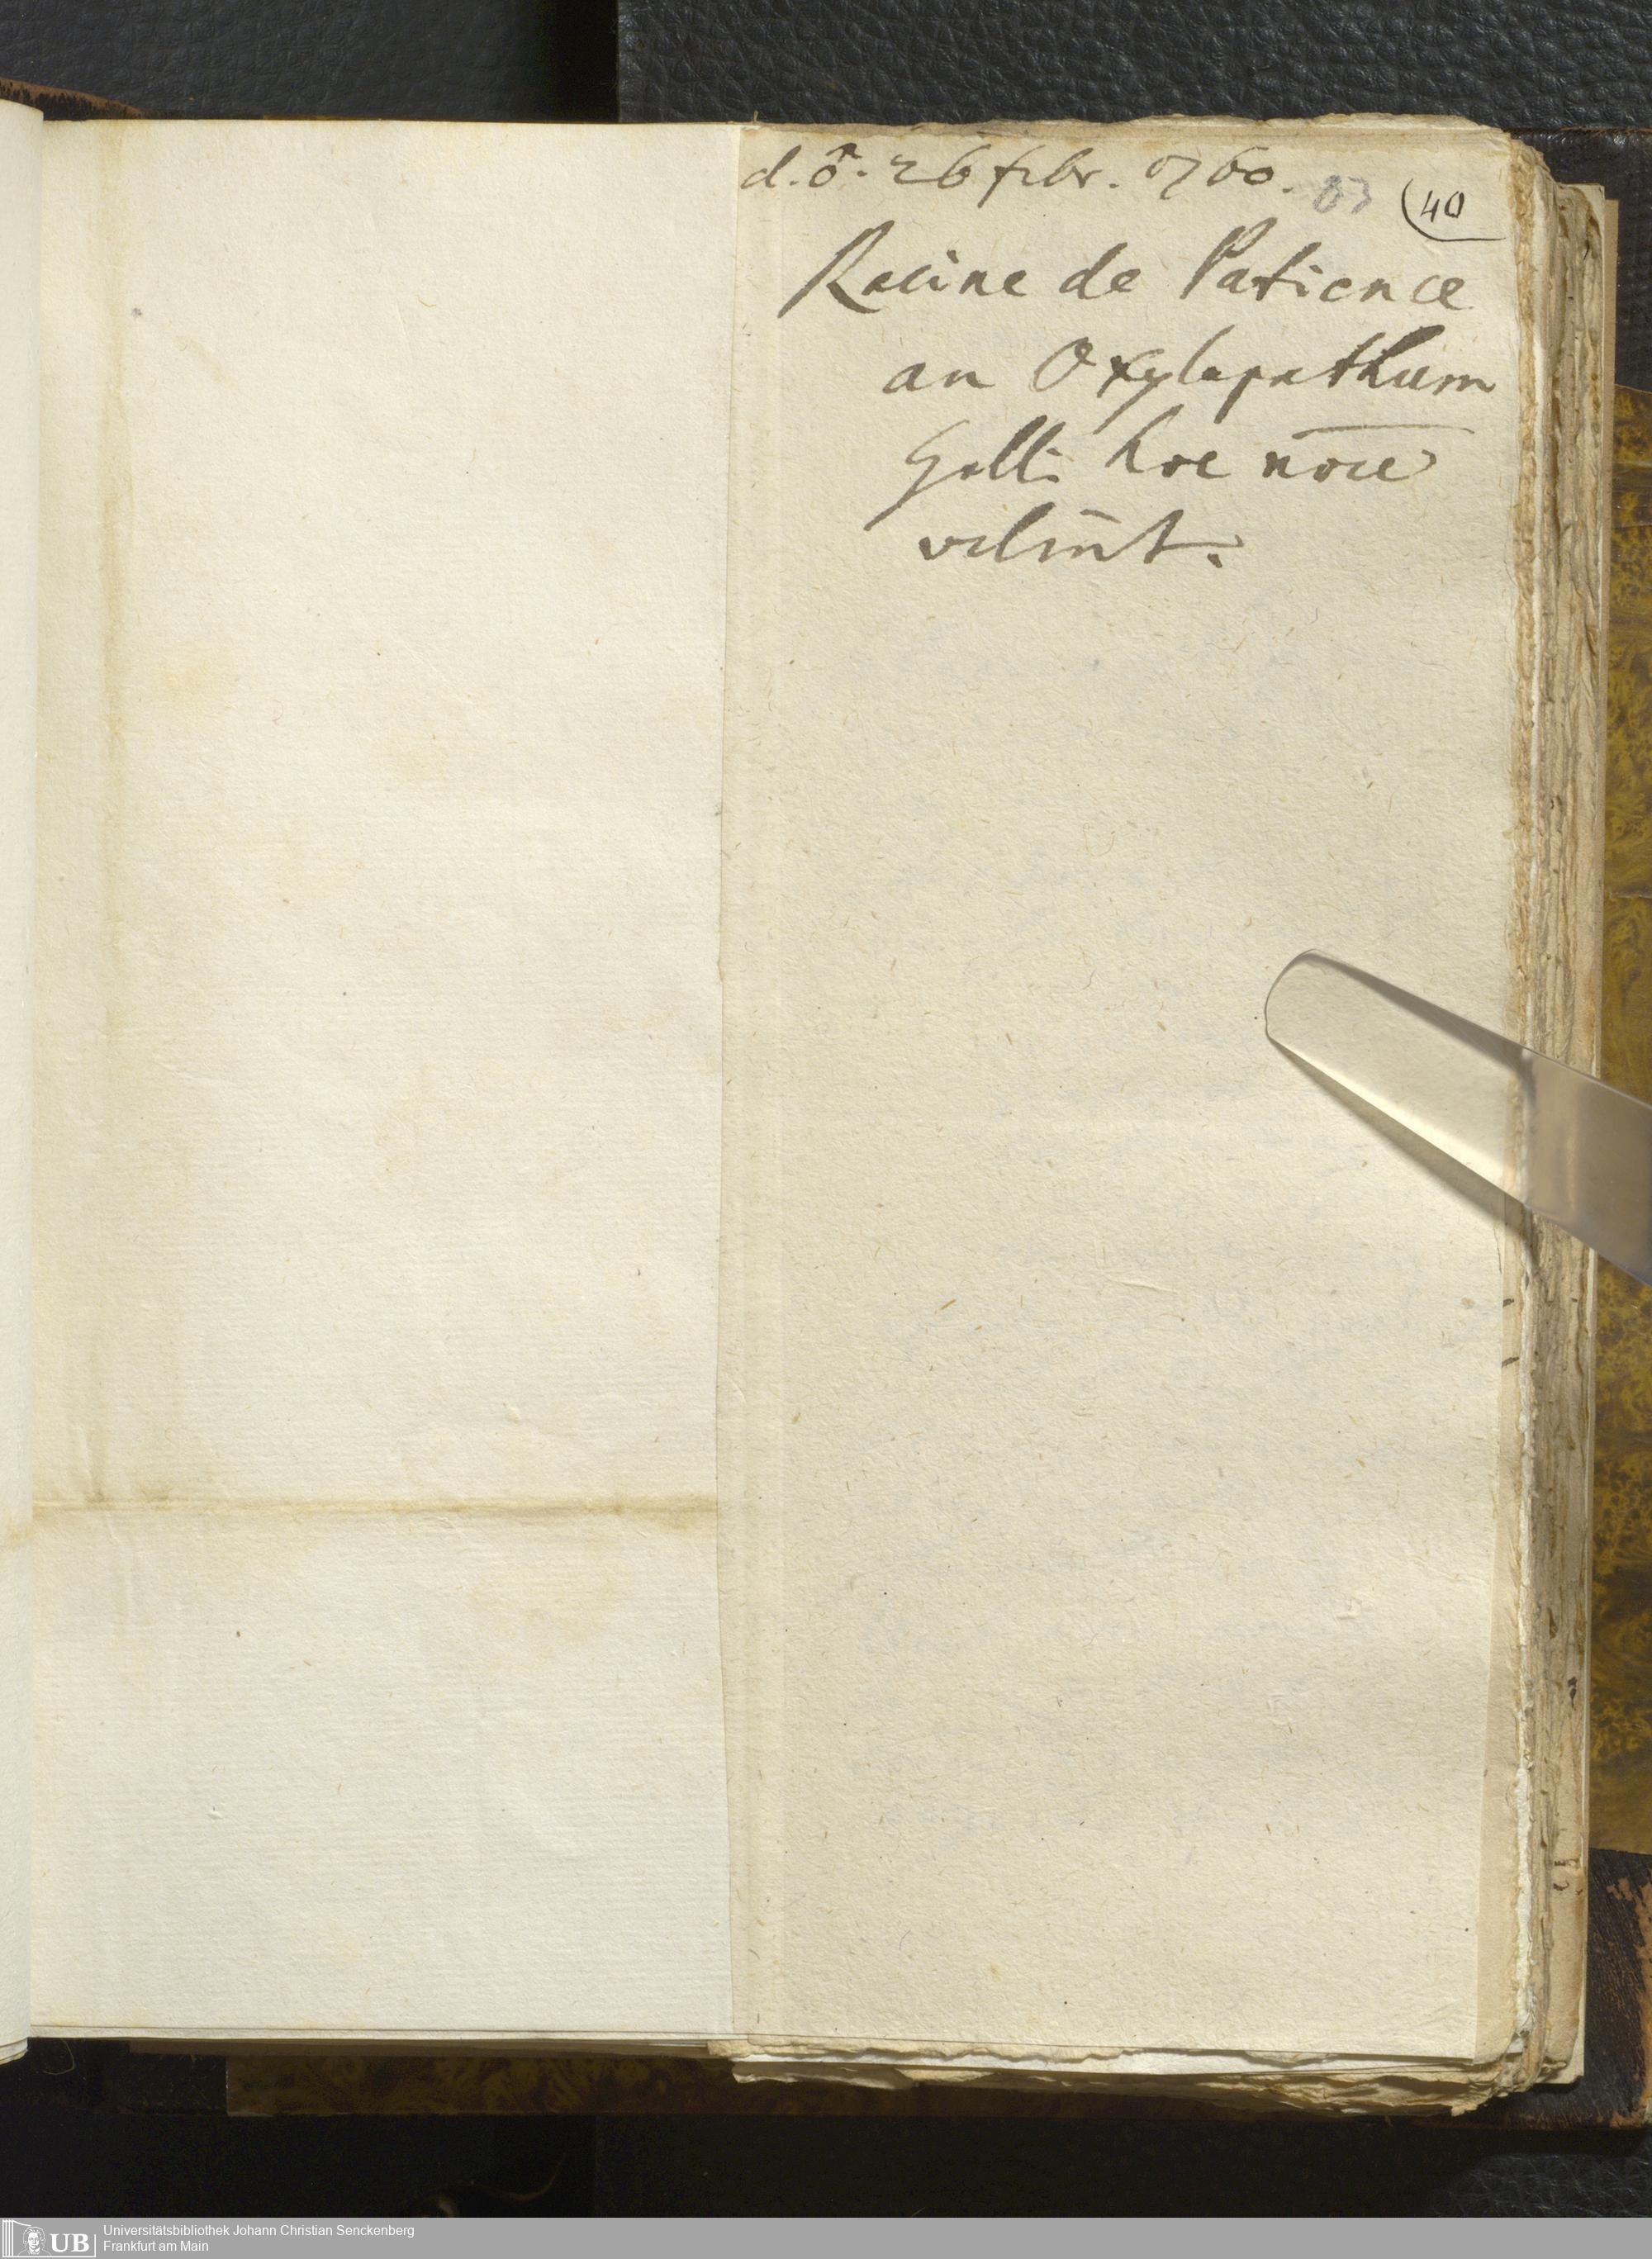 d. ♂. 26 febr. 1760.
83
(40
Racine de Patience
an Oxylapathum
Galli hoc noīe
velint.
UB
Universitätsbibliothek Johann Christian Senckenberg
Frankfurt am Main